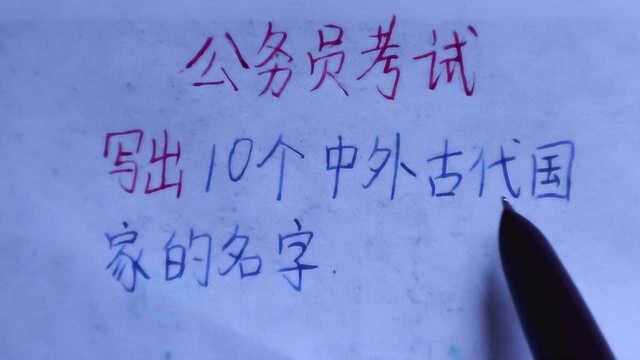 公务员考试
写出10个中外古代国
家的名字.